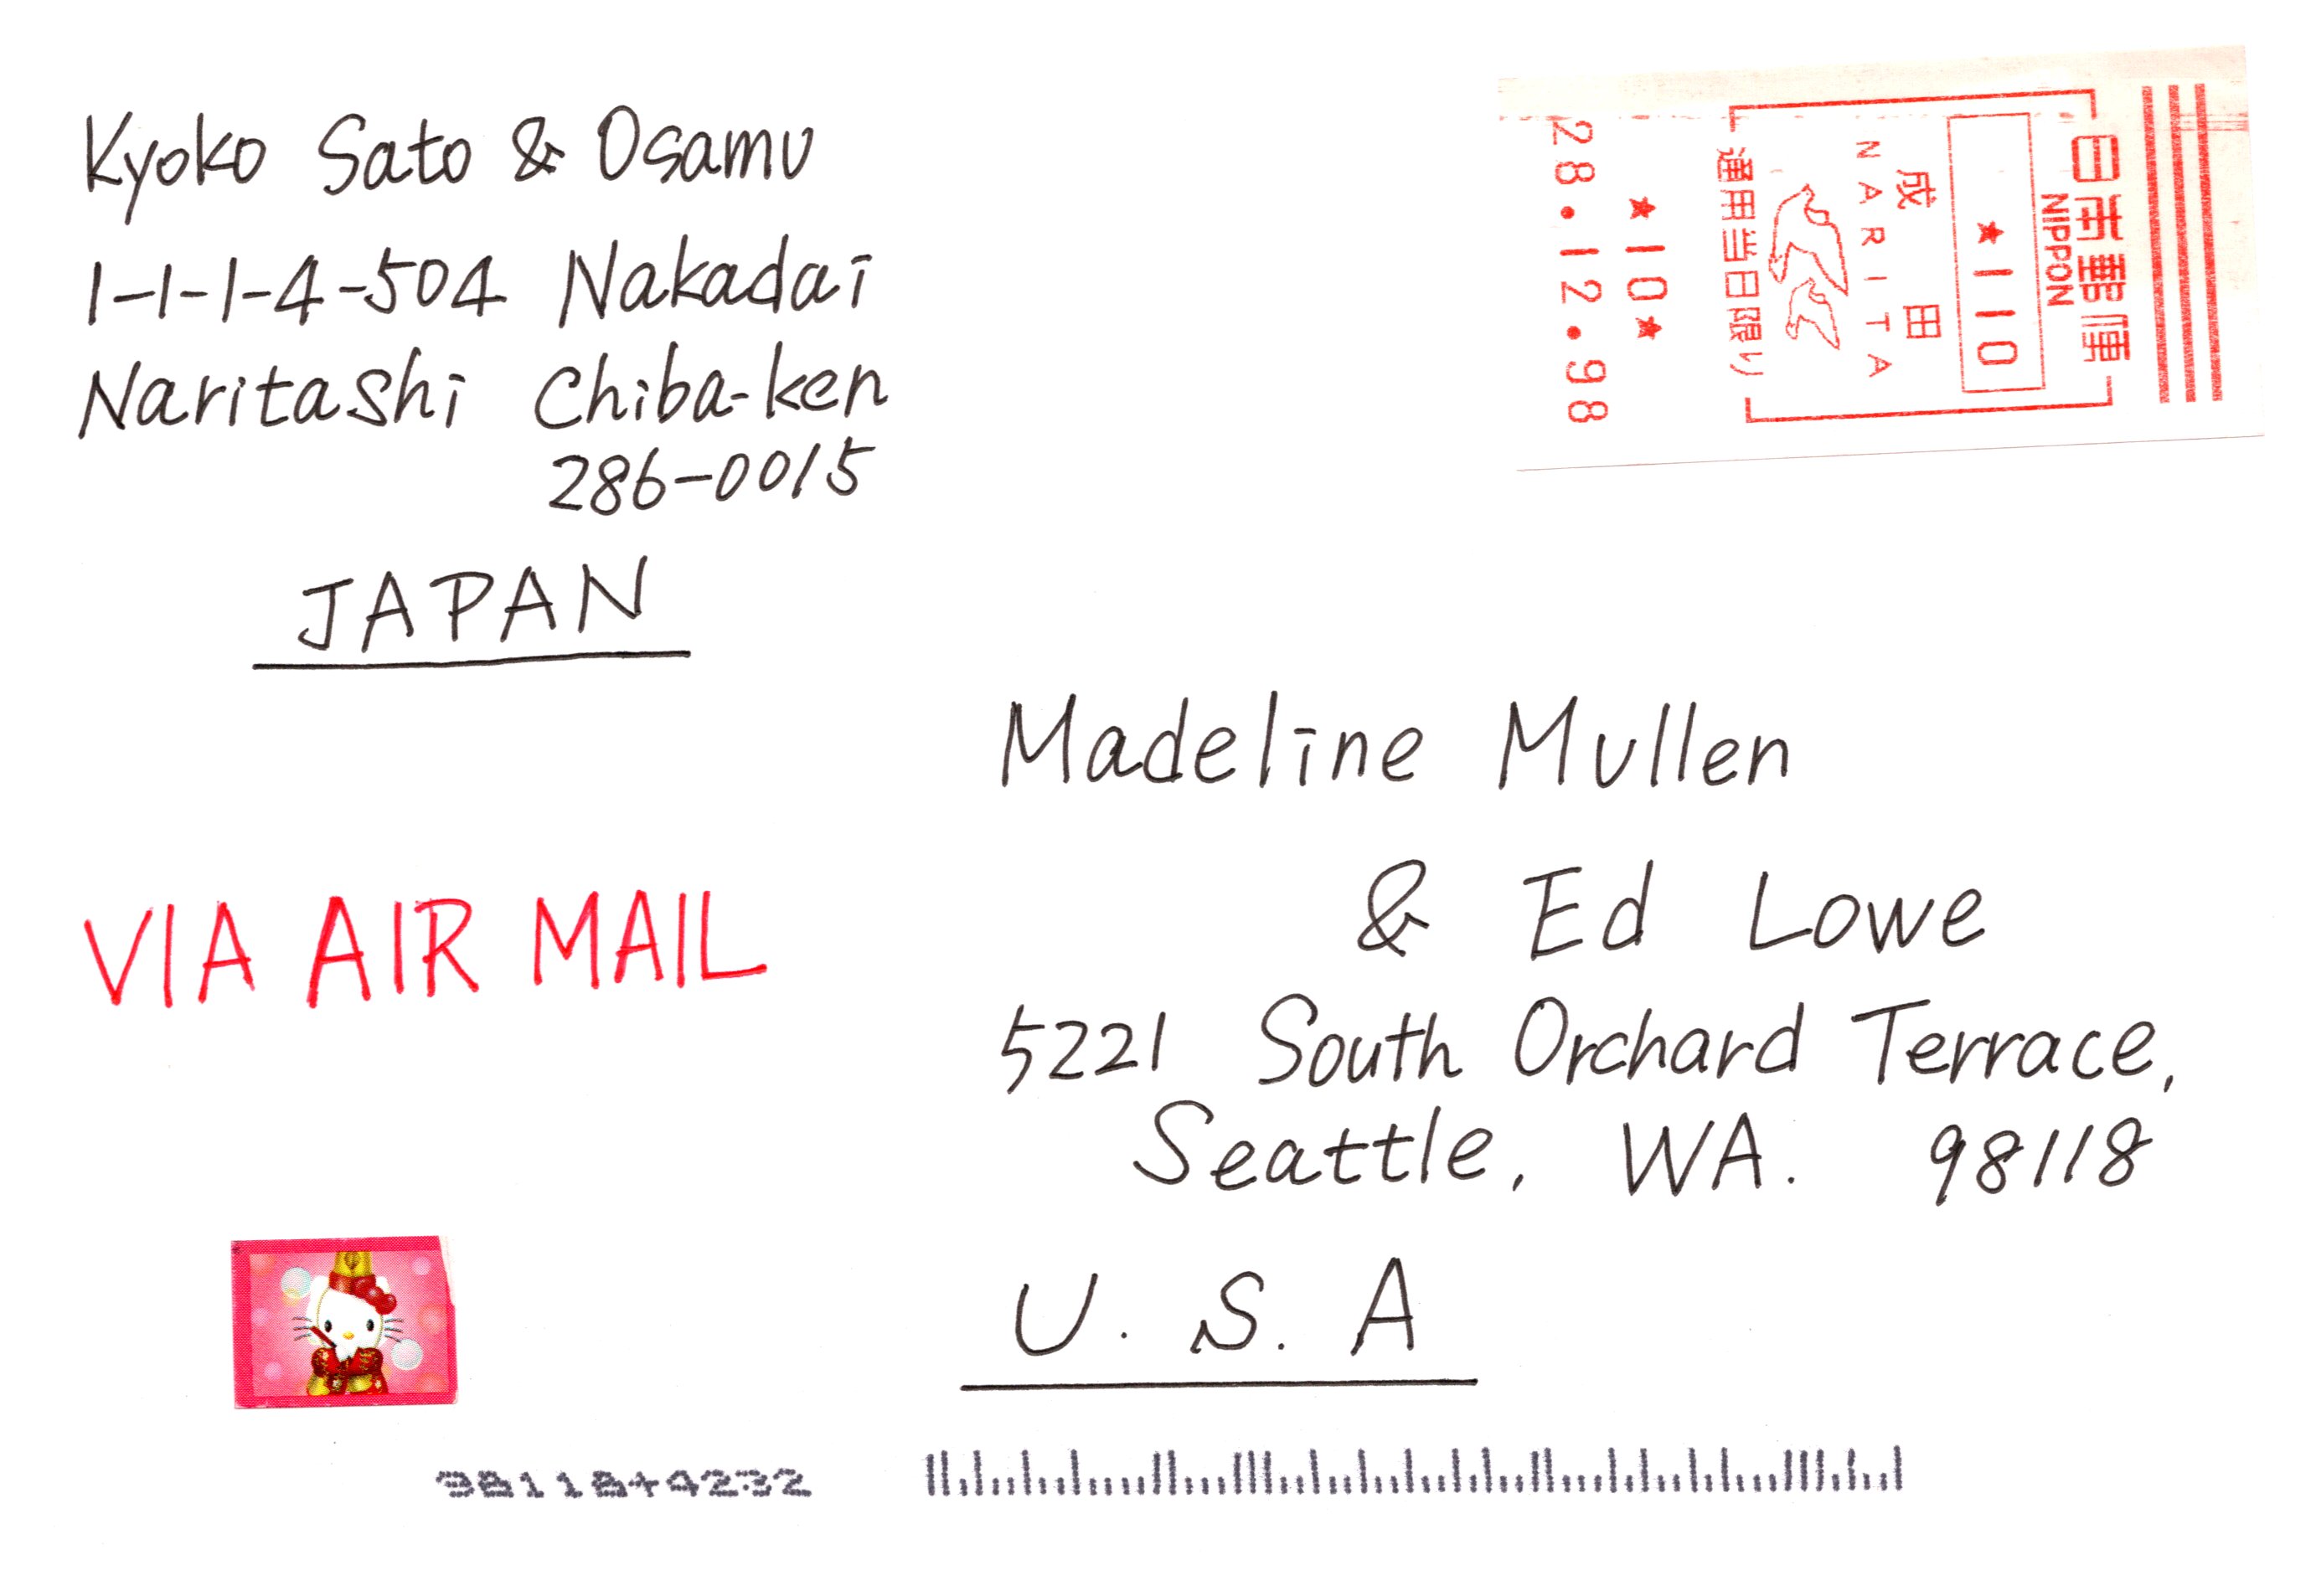 Kyoko Sato & Osamu
1-1-1-4-504 Nakadai
Naritashi Chiba-ken
286-0015
JAPAN
日本郵便
NIPPON
★110
成田
NARITA
通用当日限り
★10★
28.12.98
Madeline Mullen
& Ed Lowe
5221 South Orchard Terrace,
Seattle, WA. 98118
U. S. A
VIA AIR MAIL
98118+4232